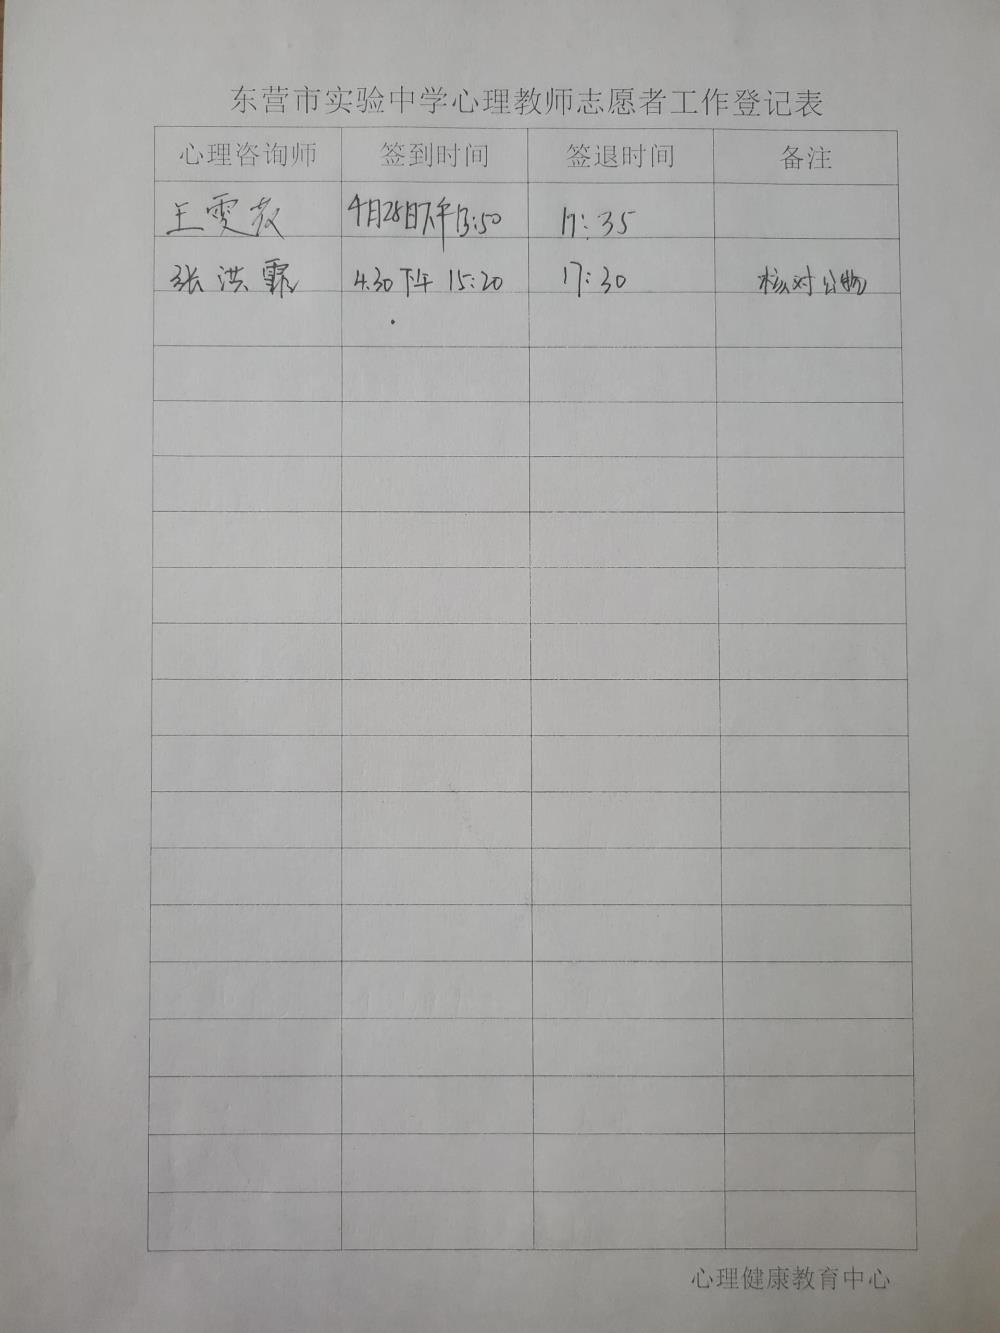 东营市实验中学心理教师志愿者工作登记表
心理咨询师 签到时间 签退时间 备注
王雯 4月28日下午13:50 17:35
张洪霏 4.30下午 15:20 17:30 核对公物
心理健康教育中心